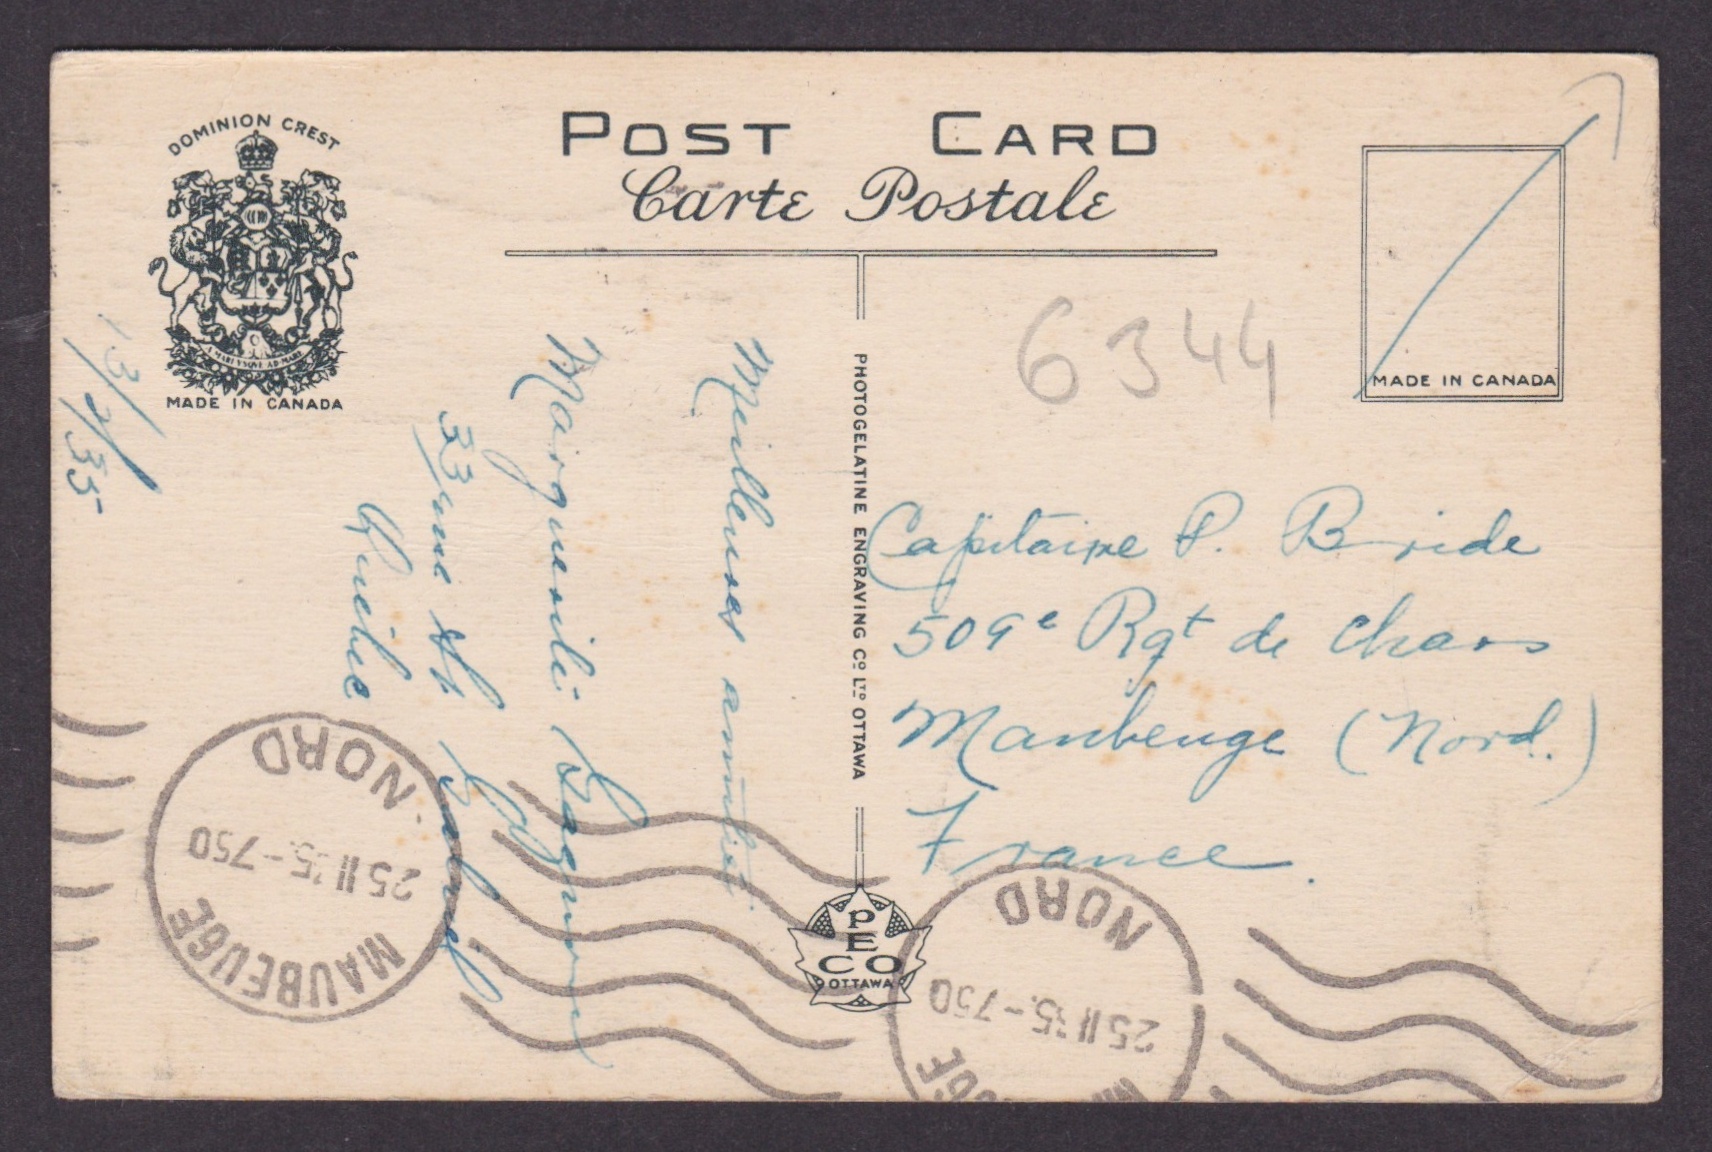 DOMINION CREST
A MARI USQUE AD MARE
MADE IN CANADA
POST CARD
Carte Postale
MADE IN CANADA
6344
13/2/35
Meilleures amitiés
Marguerite
33 rue St. Cyrille
Québec
PHOTOGELATINE ENGRAVING CO LTD OTTAWA
Capitaine P. Bride
509e Rgt de chars
Maubeuge (Nord.)
France.
PECO
OTTAWA
MAUBEUGE
25 II 35 - 750
NORD
25 II 35 - 750
NORD